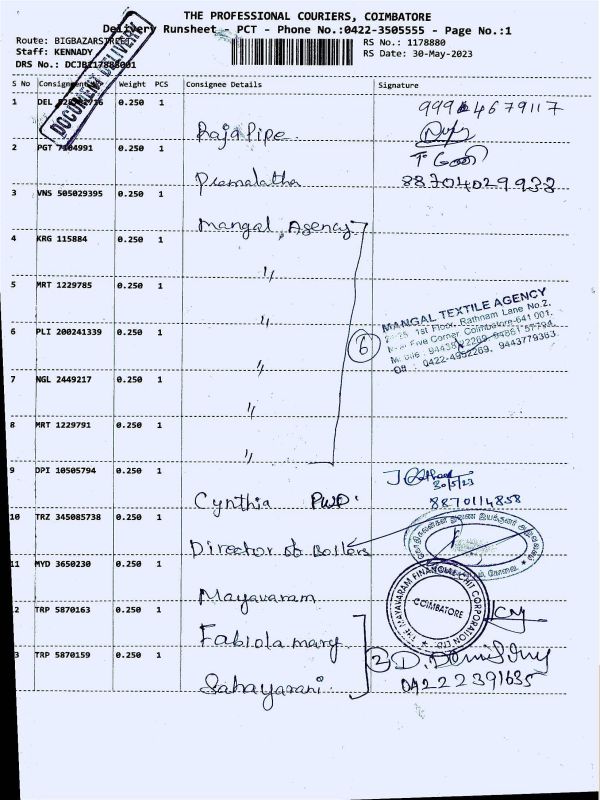 THE PROFESSIONAL COURIERS, COIMBATORE
Delivery Runsheet - PCT - Phone No.:0422-3505555 - Page No.:1
Route: BIGBAZARSTREET
RS No.: 1178880
Staff: KENNADY
RS Date: 30-May-2023
DRS No.:
DOCUMENT DELIVERY
S No Consignment Weight PCS Consignee Details Signature
1 DEL 0.250 1 Raja Pipe.
2 PGT 0.250 1 Premalatha 88704029933
3 VNS 505029395 0.250 1 Mangal Agency
4 KRG 115884 0.250 1 "
5 MRT 1229785 0.250 1 "
6 PLI 200241339 0.250 1 "
7 NGL 2449217 0.250 1 "
8 MRT 1229791 0.250 1 "
6
MANGAL TEXTILE AGENCY
1st Floor, Rathnam Lane No.2,
Five Corner, Coimbatore-641 001.
Off : 0422-4952269, 9443779363
9 DPI 10505794 0.250 1 Cynthia PWD.
30/5/23
8870114858
10 TRZ 345085738 0.250 1 Director of Boilers
11 MYD 3650230 0.250 1 Mayavaram
THE MAYAVARAM FINANCIAL CHIT CORPORATION LTD.
COIMBATORE
12 TRP 5870163 0.250 1 Fabiola mary
13 TRP 5870159 0.250 1 Sahayarani.
2
04222391635